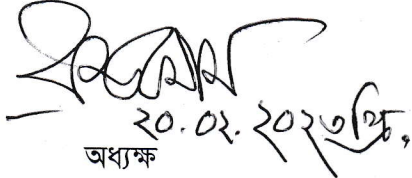 ২০.০২.২০২৩খ্রি.
অধ্যক্ষ